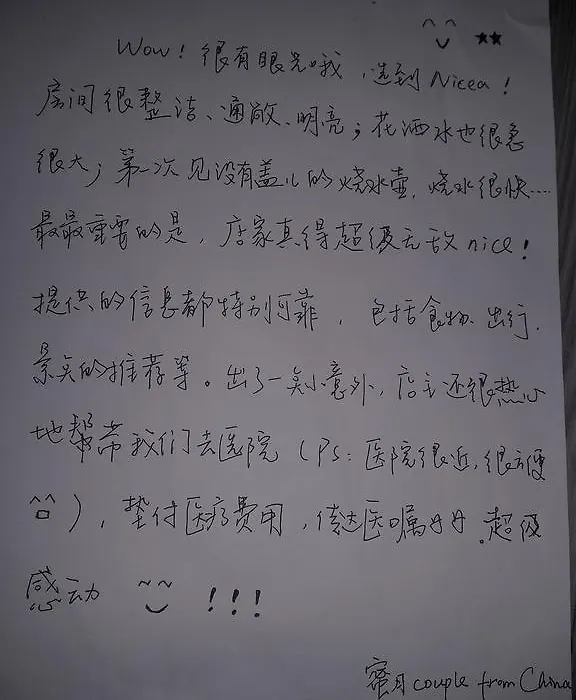 Wow！很有眼光哦，选到Nicea！
房间很整洁、通敞、明亮；花洒水也很急
很大；第一次见没有盖儿的烧水壶，烧水很快……
最最重要的是，店家真得超级无敌nice！
提供的信息都特别可靠，包括食物、出行、
景点的推荐等。出了一点小意外，店主还很热心
地帮带我们去医院（PS：医院很近，很方便
），垫付医疗费用，传达医嘱。超级
感动 ！！！
蜜月couple from China